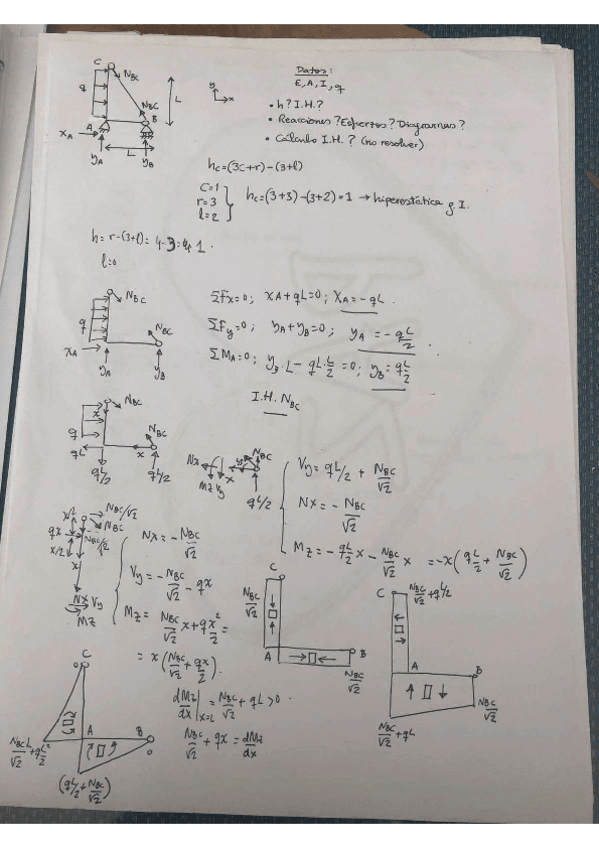 Datos:
E, A, I, q
• h? I.H.?
• Reacciones? Esfuerzos? Diagramas?
• Cálculo I.H.? (no resolver)
C
N_BC
N_BC
q
L
A
B
X_A
y_A
L
y_B
y
x
h_c = (3c+r) - (3+l)
C=1
r=3
l=2
h_c = (3+3) - (3+2) = 1 → hiperestática g. I.
h = r - (3+l) = 4 - 3 = 1.
l=0
N_BC
q
N_BC
X_A
y_A
y_B
ΣF_x=0; X_A + qL = 0; X_A = -qL.
ΣF_y=0; y_A + y_B = 0; y_A = -q L/2
ΣM_A=0; y_B · L - qL · L/2 = 0; y_B = q L/2
I.H. N_BC
N_BC
x
q
N_BC
qL
x
qL/2
qL/2
N_BC
Nx
Mz Vy
x
qL/2
Vy = qL/2 + N_BC/√2
Nx = - N_BC/√2
Mz = - q L/2 x - N_BC/√2 x = -x (q L/2 + N_BC/√2)
N_BC/√2
x/2
N_BC
qx
N_BC/√2
x/2
x
Nx
Vy
Mz
Nx = - N_BC/√2
Vy = - N_BC/√2 - qx
Mz = N_BC/√2 x + q x²/2 =
= x (N_BC/√2 + qx/2).
dMz/dx |x=L = N_BC/√2 + qL > 0.
N_BC/√2 + qx = dMz/dx
C
N_BC/√2
A
B
N_BC/√2
C
N_BC/√2 + qL/2
A
B
N_BC/√2
N_BC/√2 + qL
C
A
B
N_BC L/√2 + q L²/2
(qL/2 + N_BC/√2)